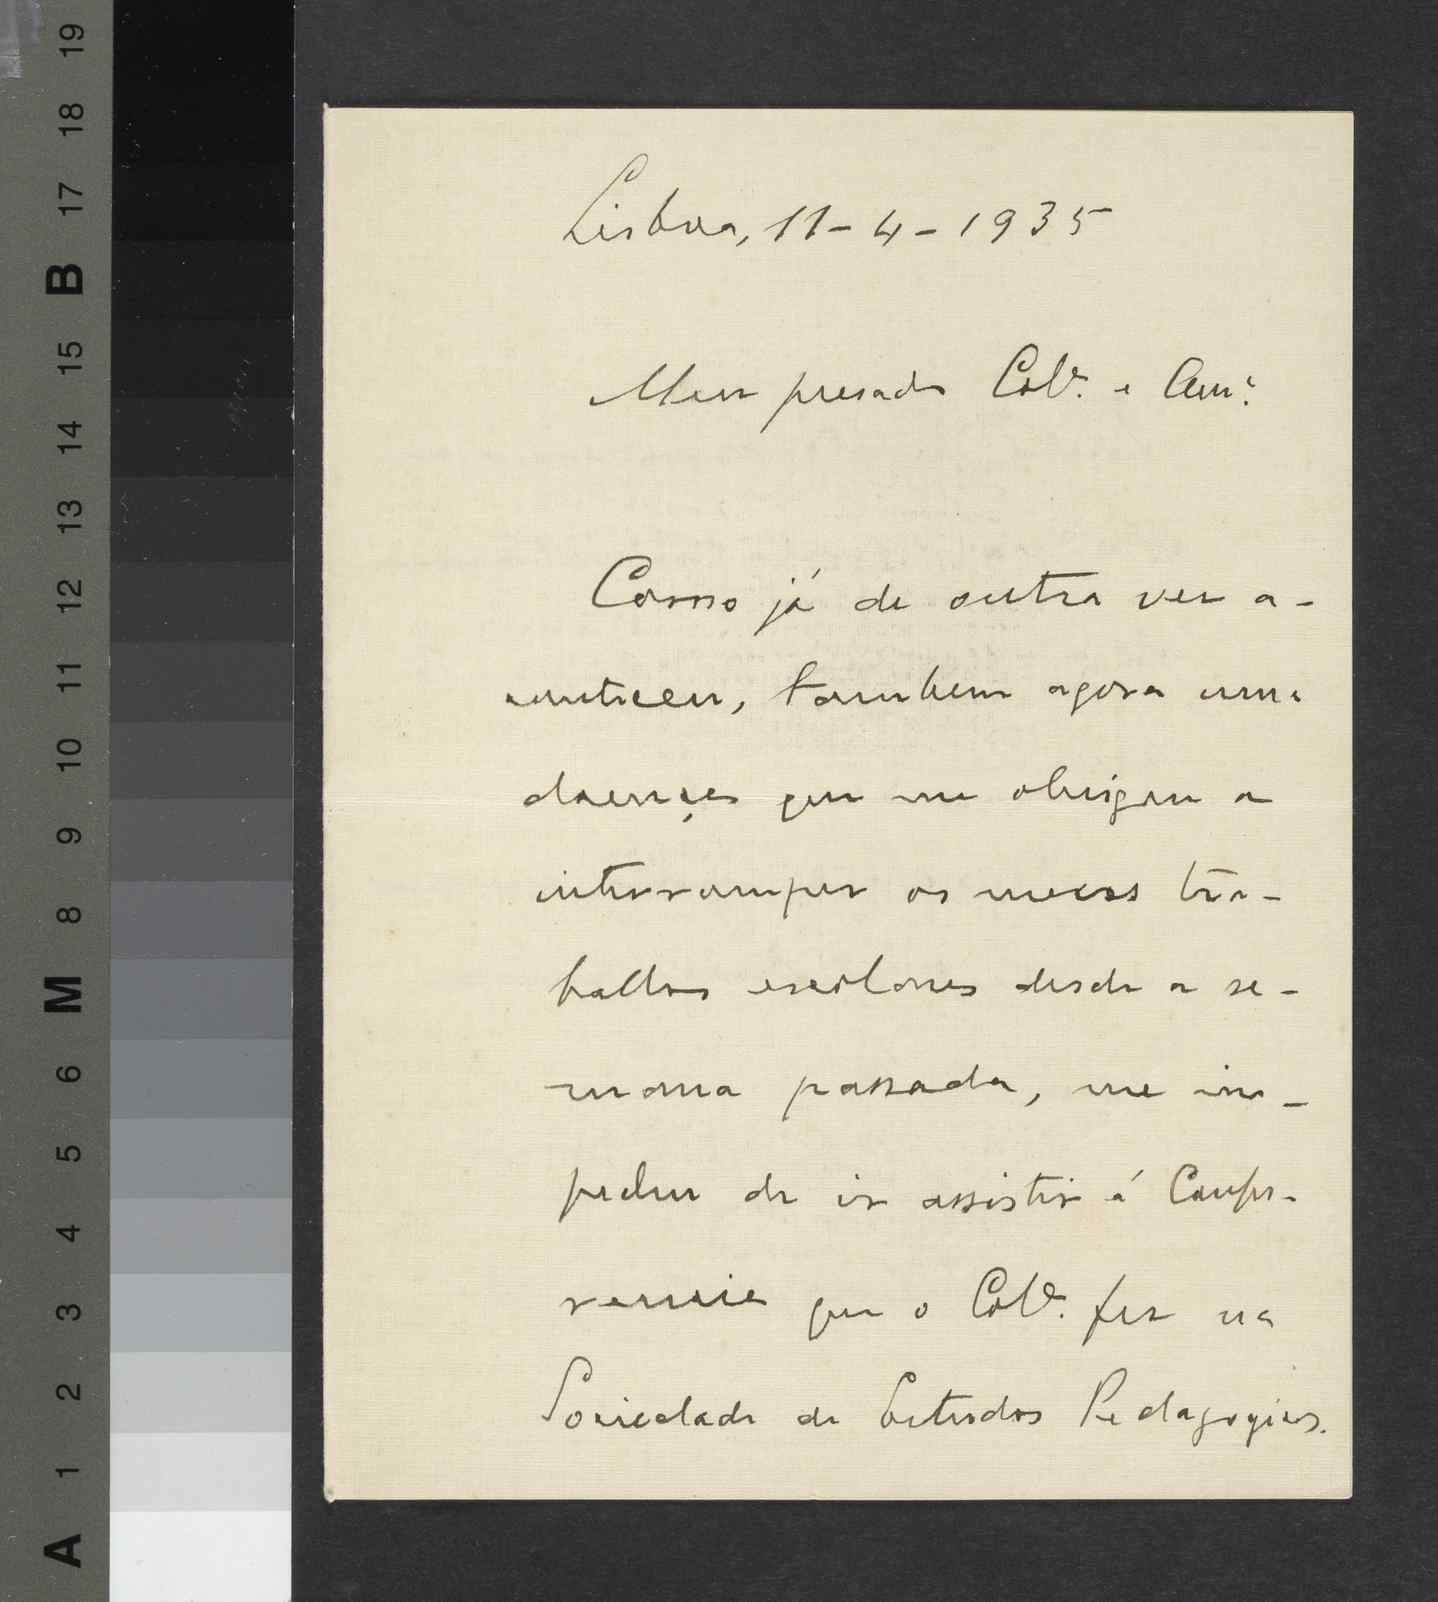 19
18
17
B
15
14
13
12
11
10
9
8
M
6
5
4
3
2
1
A
Lisboa, 11-4-1935
Meu presado Colª. e Amº.
Como já de outra vez a-
conteceu, tambem agora uma
doença que me obrigou a
interromper os meus tra-
balhos escolares desde a se-
mana passada, me im-
pediu de ir assistir á Confe-
rencia que o Colª. fez na
Sociedade de Estudos Pedagogicos.